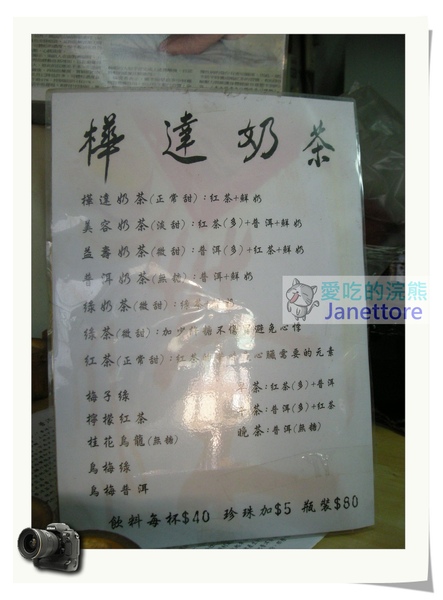 樺達奶茶
樺達奶茶(正常甜):紅茶+鮮奶
美容奶茶(淡甜):紅茶(多)+普洱+鮮奶
益壽奶茶(微甜):普洱(多)+紅茶+鮮奶
普洱奶茶(無糖):普洱+鮮奶
綠奶茶(微甜):綠茶 奶
綠茶(微甜):加少 糖不傷胃避免心悸
紅茶(正常甜):紅茶 心臟需要的元素
梅子綠
茶:紅茶(多)+普洱
檸檬紅茶
茶:普洱(多)+紅茶
桂花烏龍(無糖)
晚茶:普洱(無糖)
烏梅綠
烏梅普洱
飲料每杯$40 珍珠加$5 瓶裝$80
愛吃的浣熊
Janettore